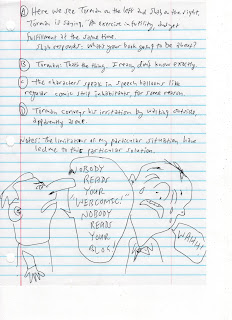 (A) Here we see on the left and on the right.
is saying, exercise in futility,
fulfillment at the same time.
responds: What's your book going to be about?
(B) That's the thing. I really don't know exactly.
(C) The characters speak in speech balloons like
regular comic strip inhabitants, for some reason.
(D) his irritation by outside,
apparently
Notes: The limitations of my particular situation have
led me to this particular solution.
NOBODY
READS
YOUR
WEBCOMIC!
NOBODY
READS
YOUR
BLOG!
WAHH!